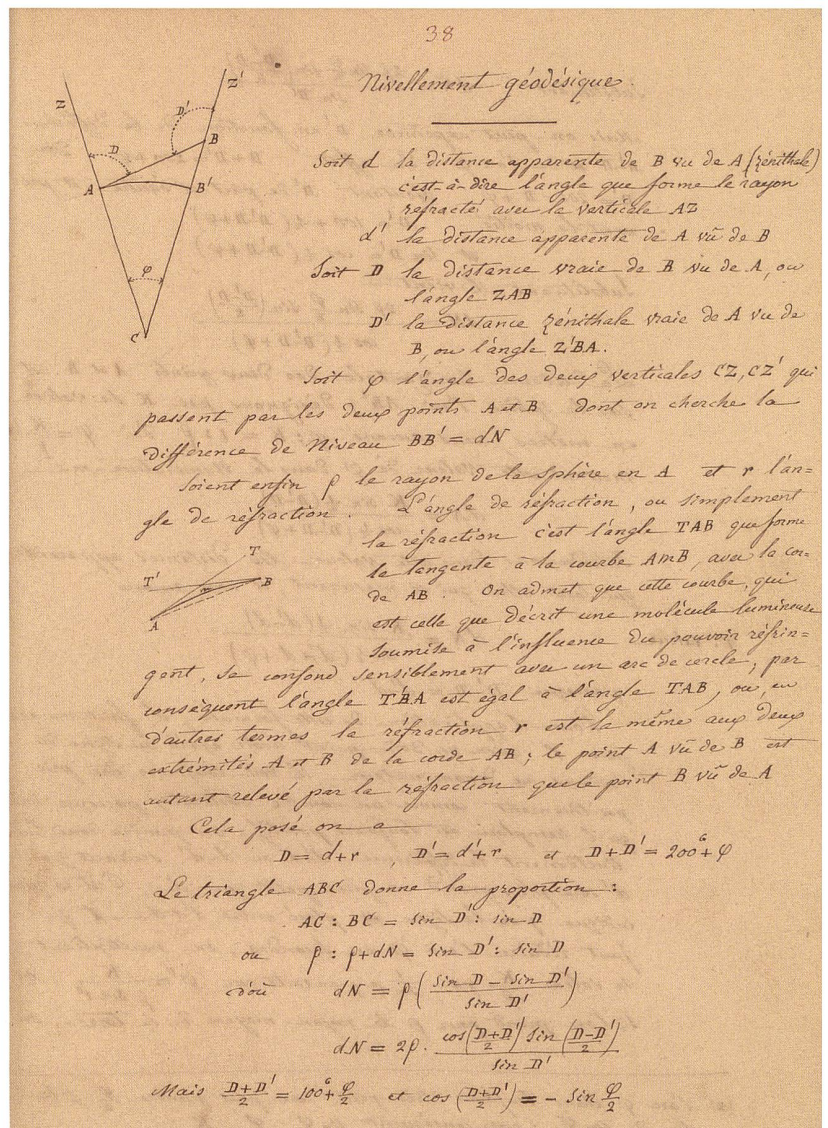 38
Nivellement géodésique.
Z
Z'
D'
D
B
A
B'
φ
C
Soit d la distance apparente de B vu de A (zénithale)
c'est-à-dire l'angle que forme le rayon
réfracté avec la verticale AZ
d' la distance apparente de A vû de B
Soit D la distance vraie de B vu de A, ou
l'angle ZAB
D' la distance zénithale vraie de A vu de
B, ou l'angle Z'BA.
Soit φ l'angle des deux verticales CZ, CZ' qui
passent par les deux points A et B dont on cherche la
différence de Niveau BB' = dN
Soient enfin ρ le rayon de la sphère en A et r l'an=
gle de réfraction. L'angle de réfraction, ou simplement
la réfraction c'est l'angle TAB que forme
la tangente à la courbe AmB, avec la cor=
de AB. On admet que cette courbe, qui
est celle que décrit une molécule lumineuse
soumise à l'influence du pouvoir réfrin=
T
T'
B
m
A
gent, se confond sensiblement avec un arc de cercle, par
conséquent l'angle T'BA est égal à l'angle TAB, ou, en
d'autres termes la réfraction r est la même aux deux
extrémités A et B de la corde AB; le point A vû de B est
autant relevé par la réfraction que le point B vû de A
Cela posé on a
D = d+r , D' = d'+r et D+D' = 200ᴳ+φ
Le triangle ABC donne la proportion :
AC : BC = sin D' : sin D
ou ρ : ρ+dN = sin D' : sin D
d'où dN = ρ ( (sin D - sin D') / sin D' )
dN = 2ρ . cos((D+D')/2) sin((D-D')/2) / sin D'
Mais (D+D')/2 = 100ᴳ+φ/2 et cos((D+D')/2) = - sin φ/2